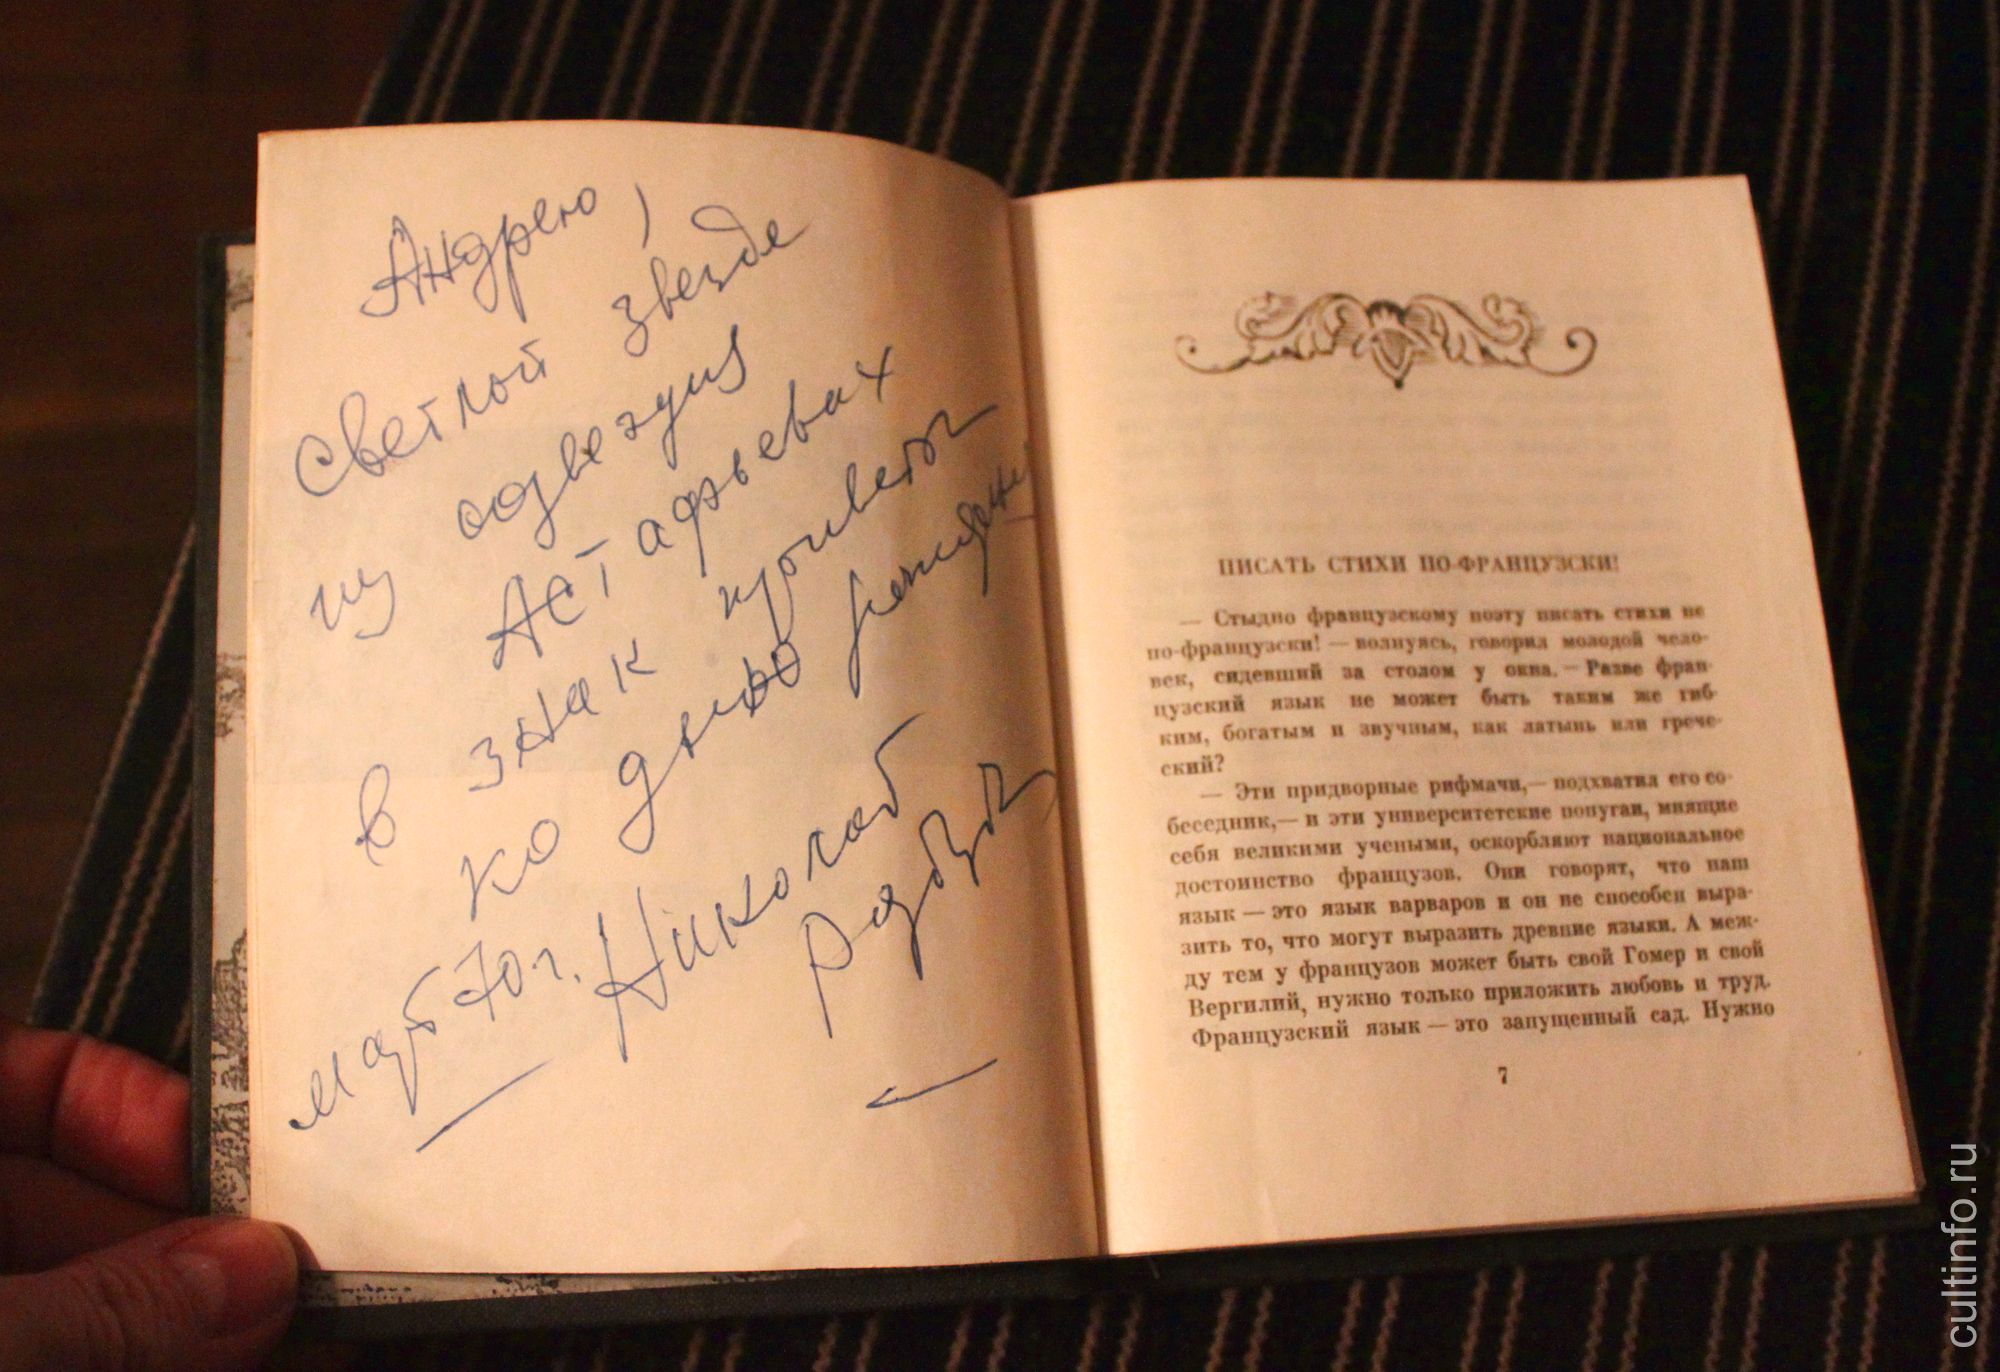 Андрею,
Светлой звезде
из созвездия
Астафьевых
в знак привета
ко дню рождения
Николай
Рубцов
март 70 г.
ПИСАТЬ СТИХИ ПО-ФРАНЦУЗСКИ!
— Стыдно французскому поэту писать стихи не
по-французски! — волнуясь, говорил молодой чело-
век, сидевший за столом у окна. — Разве фран-
цузский язык не может быть таким же гиб-
ким, богатым и звучным, как латынь или грече-
ский?
— Эти придворные рифмачи,— подхватил его со-
беседник,— и эти университетские попугаи, мнящие
себя великими учеными, оскорбляют национальное
достоинство французов. Они говорят, что наш
язык — это язык варваров и он не способен выра-
зить то, что могут выразить древние языки. А меж-
ду тем у французов может быть свой Гомер и свой
Вергилий, нужно только приложить любовь и труд.
Французский язык — это запущенный сад. Нужно
7
cultinfo.ru